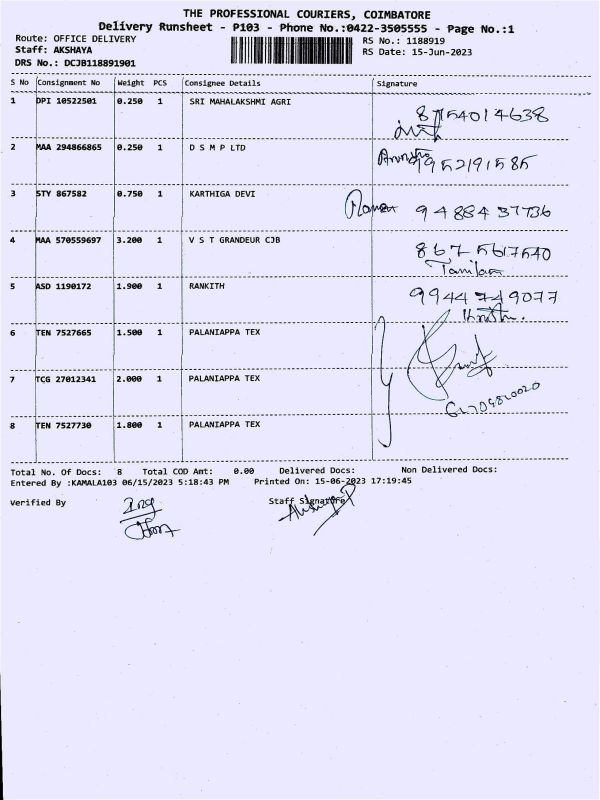 THE PROFESSIONAL COURIERS, COIMBATORE
Delivery Runsheet - P103 - Phone No.:0422-3505555 - Page No.:1
Route: OFFICE DELIVERY
RS No.: 1188919
Staff: AKSHAYA
RS Date: 15-Jun-2023
DRS No.: DCJB118891901
S No Consignment No Weight PCS Consignee Details Signature
1 DPI 10522501 0.250 1 SRI MAHALAKSHMI AGRI
2 MAA 294866865 0.250 1 D S M P LTD
9952191585
3 STY 867582 0.750 1 KARTHIGA DEVI
9488437736
4 MAA 570559697 3.200 1 V S T GRANDEUR CJB
8675617540
5 ASD 1190172 1.900 1 RANKITH
9944749077
6 TEN 7527665 1.500 1 PALANIAPPA TEX
7 TCG 27012341 2.000 1 PALANIAPPA TEX
8 TEN 7527730 1.800 1 PALANIAPPA TEX
Total No. Of Docs: 8 Total COD Amt: 0.00 Delivered Docs: Non Delivered Docs:
Entered By :KAMALA103 06/15/2023 5:18:43 PM Printed On: 15-06-2023 17:19:45
Verified By
Staff Signature